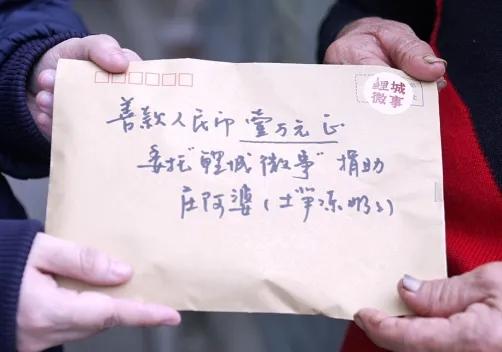 鲤城
微事
善款人民币 壹万元正
委托“鲤城微事”捐助
庄阿婆（土笋冻奶奶）